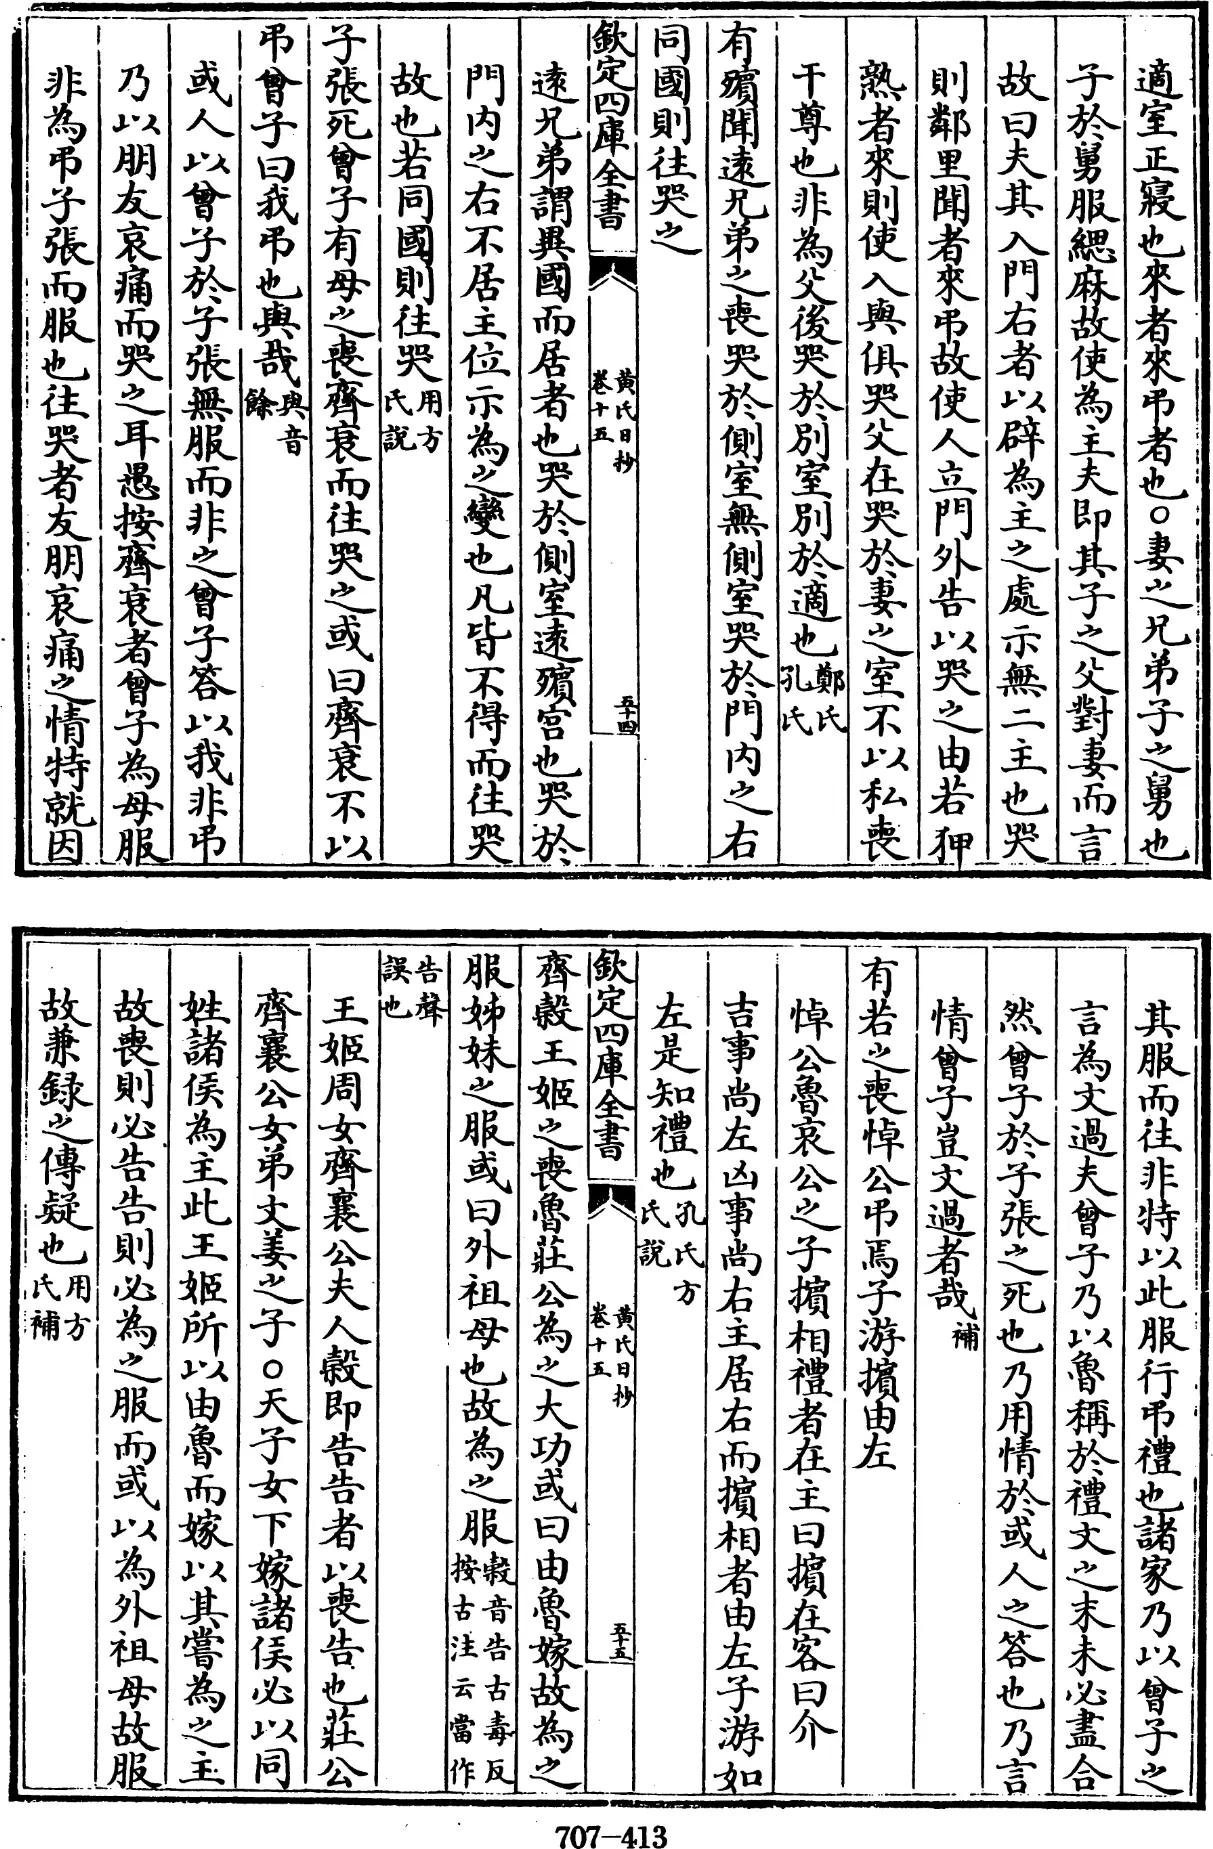 適室正寢也來者來弔者也○妻之兄弟子之舅也
子於舅服緦麻故使為主夫即其子之父對妻而言
故曰夫其入門右者以辟為主之處示無二主也哭
則鄰里聞者來弔故使人立門外告以哭之由若狎
熟者來則使入與俱哭父在哭於妻之室不以私喪
干尊也非為父後哭於別室別於適也鄭氏孔氏
有殯聞遠兄弟之喪哭於側室無側室哭於門内之右
同國則往哭之
欽定四庫全書 黄氏日抄卷十五 五十四
遠兄弟謂異國而居者也哭於側室遠殯宮也哭於
門内之右不居主位示為之變也凡皆不得而往哭
故也若同國則往哭用方氏說
子張死曾子有母之喪齊衰而往哭之或曰齊衰不以
弔曾子曰我弔也與哉與音餘
或人以曾子於子張無服而非之曾子答以我非弔
乃以朋友哀痛而哭之耳愚按齊衰者曾子為母服
非為弔子張而服也往哭者友朋哀痛之情特就因
其服而往非特以此服行弔禮也諸家乃以曾子之
言為文過夫曾子乃以魯稱於禮文之末未必盡合
然曾子於子張之死也乃用情於或人之答也乃言
情曾子豈文過者哉補
有若之喪悼公弔焉子游擯由左
悼公魯哀公之子擯相禮者在主曰擯在客曰介
吉事尚左凶事尚右主居右而擯相者由左子游如
左是知禮也孔氏方氏說
欽定四庫全書 黄氏日抄卷十五 五十五
齊穀王姬之喪魯莊公為之大功或曰由魯嫁故為之
服姊妹之服或曰外祖母也故為之服穀音告古毒反按古注云當作
告聲誤也
王姬周女齊襄公夫人穀即告告者以喪告也莊公
齊襄公女弟文姜之子○天子女下嫁諸侯必以同
姓諸侯為主此王姬所以由魯而嫁以其嘗為之主
故喪則必告告則必為之服而或以為外祖母故服
故兼録之傳疑也用方氏補
707-413